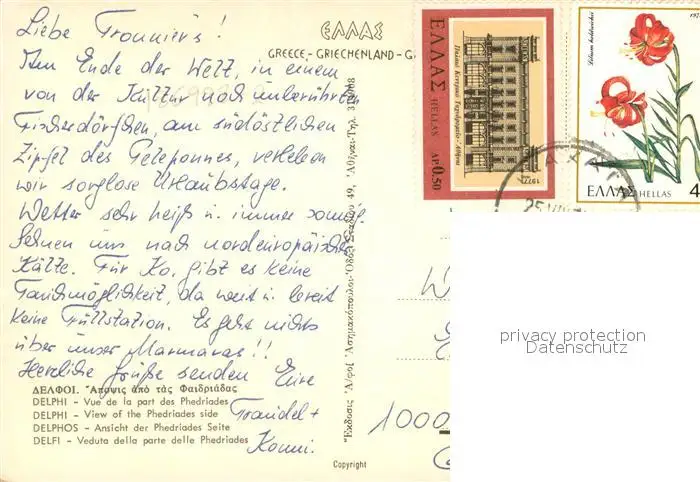 Liebe Tronnier's!
Am Ende der Welt, in einem
von der Kultur noch unberührten
Fischerdörfchen, am südöstlichen
Zipfel des Peleponnes, verleben
wir sorglose Urlaubstage.
Wetter sehr heiß u. immer sonnig
Sehnen uns nach nordeuropäischer
Kälte. Für Ko. gibt es keine
Tauchmöglichkeit, da weit u. breit
keine Füllstation. Es geht nichts
über unser Marmaras!!
Herzliche Grüße senden Eure
Traudel +
Konni.
ΔΕΛΦΟΙ. Ἄποψις ἀπό τάς Φαιδριάδας
DELPHI - Vue de la part des Phedriades
DELPHI - View of the Phedriades side
DELPHOS - Ansicht der Phedriades Seite
DELFI - Veduta della parte delle Phedriades
ΕΛΛΑΣ
GREECE - GRIECHENLAND - G
Copyright
1000
ΕΛΛΑΣ HELLAS
ΔΡ. 0.50
1977
ΕΛΛΑΣ HELLAS
4
privacy protection
Datenschutz